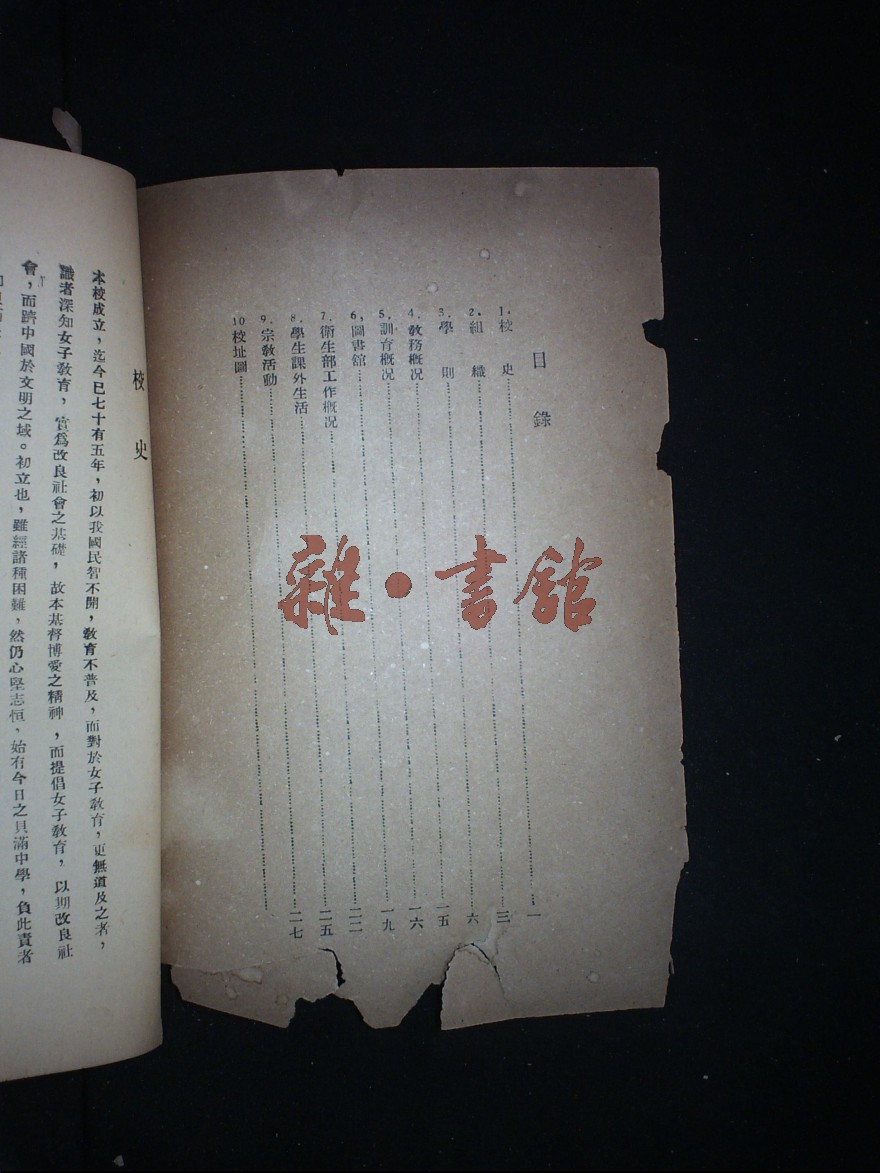 目錄
1. 校史……一
2. 組織……三
3. 學則……六
4. 教務概況……一五
5. 訓育概況……一六
6, 圖書館……一九
7. 衛生部工作概况……二二
8. 學生課外生活……二五
9. 宗教活動……二七
10 校址圖……
雜•書館
校史
本校成立，迄今已七十有五年，初以我國民智不開，教育不普及，而對於女子教育，更無道及之者，
識者深知女子教育，實爲改良社會之基礎，故本基督博愛之精神，而提倡女子教育，以期改良社
會，而躋中國於文明之域。初立也，雖經諸種困難，然仍心堅志恒，始有今日之貝滿中學，負此責者